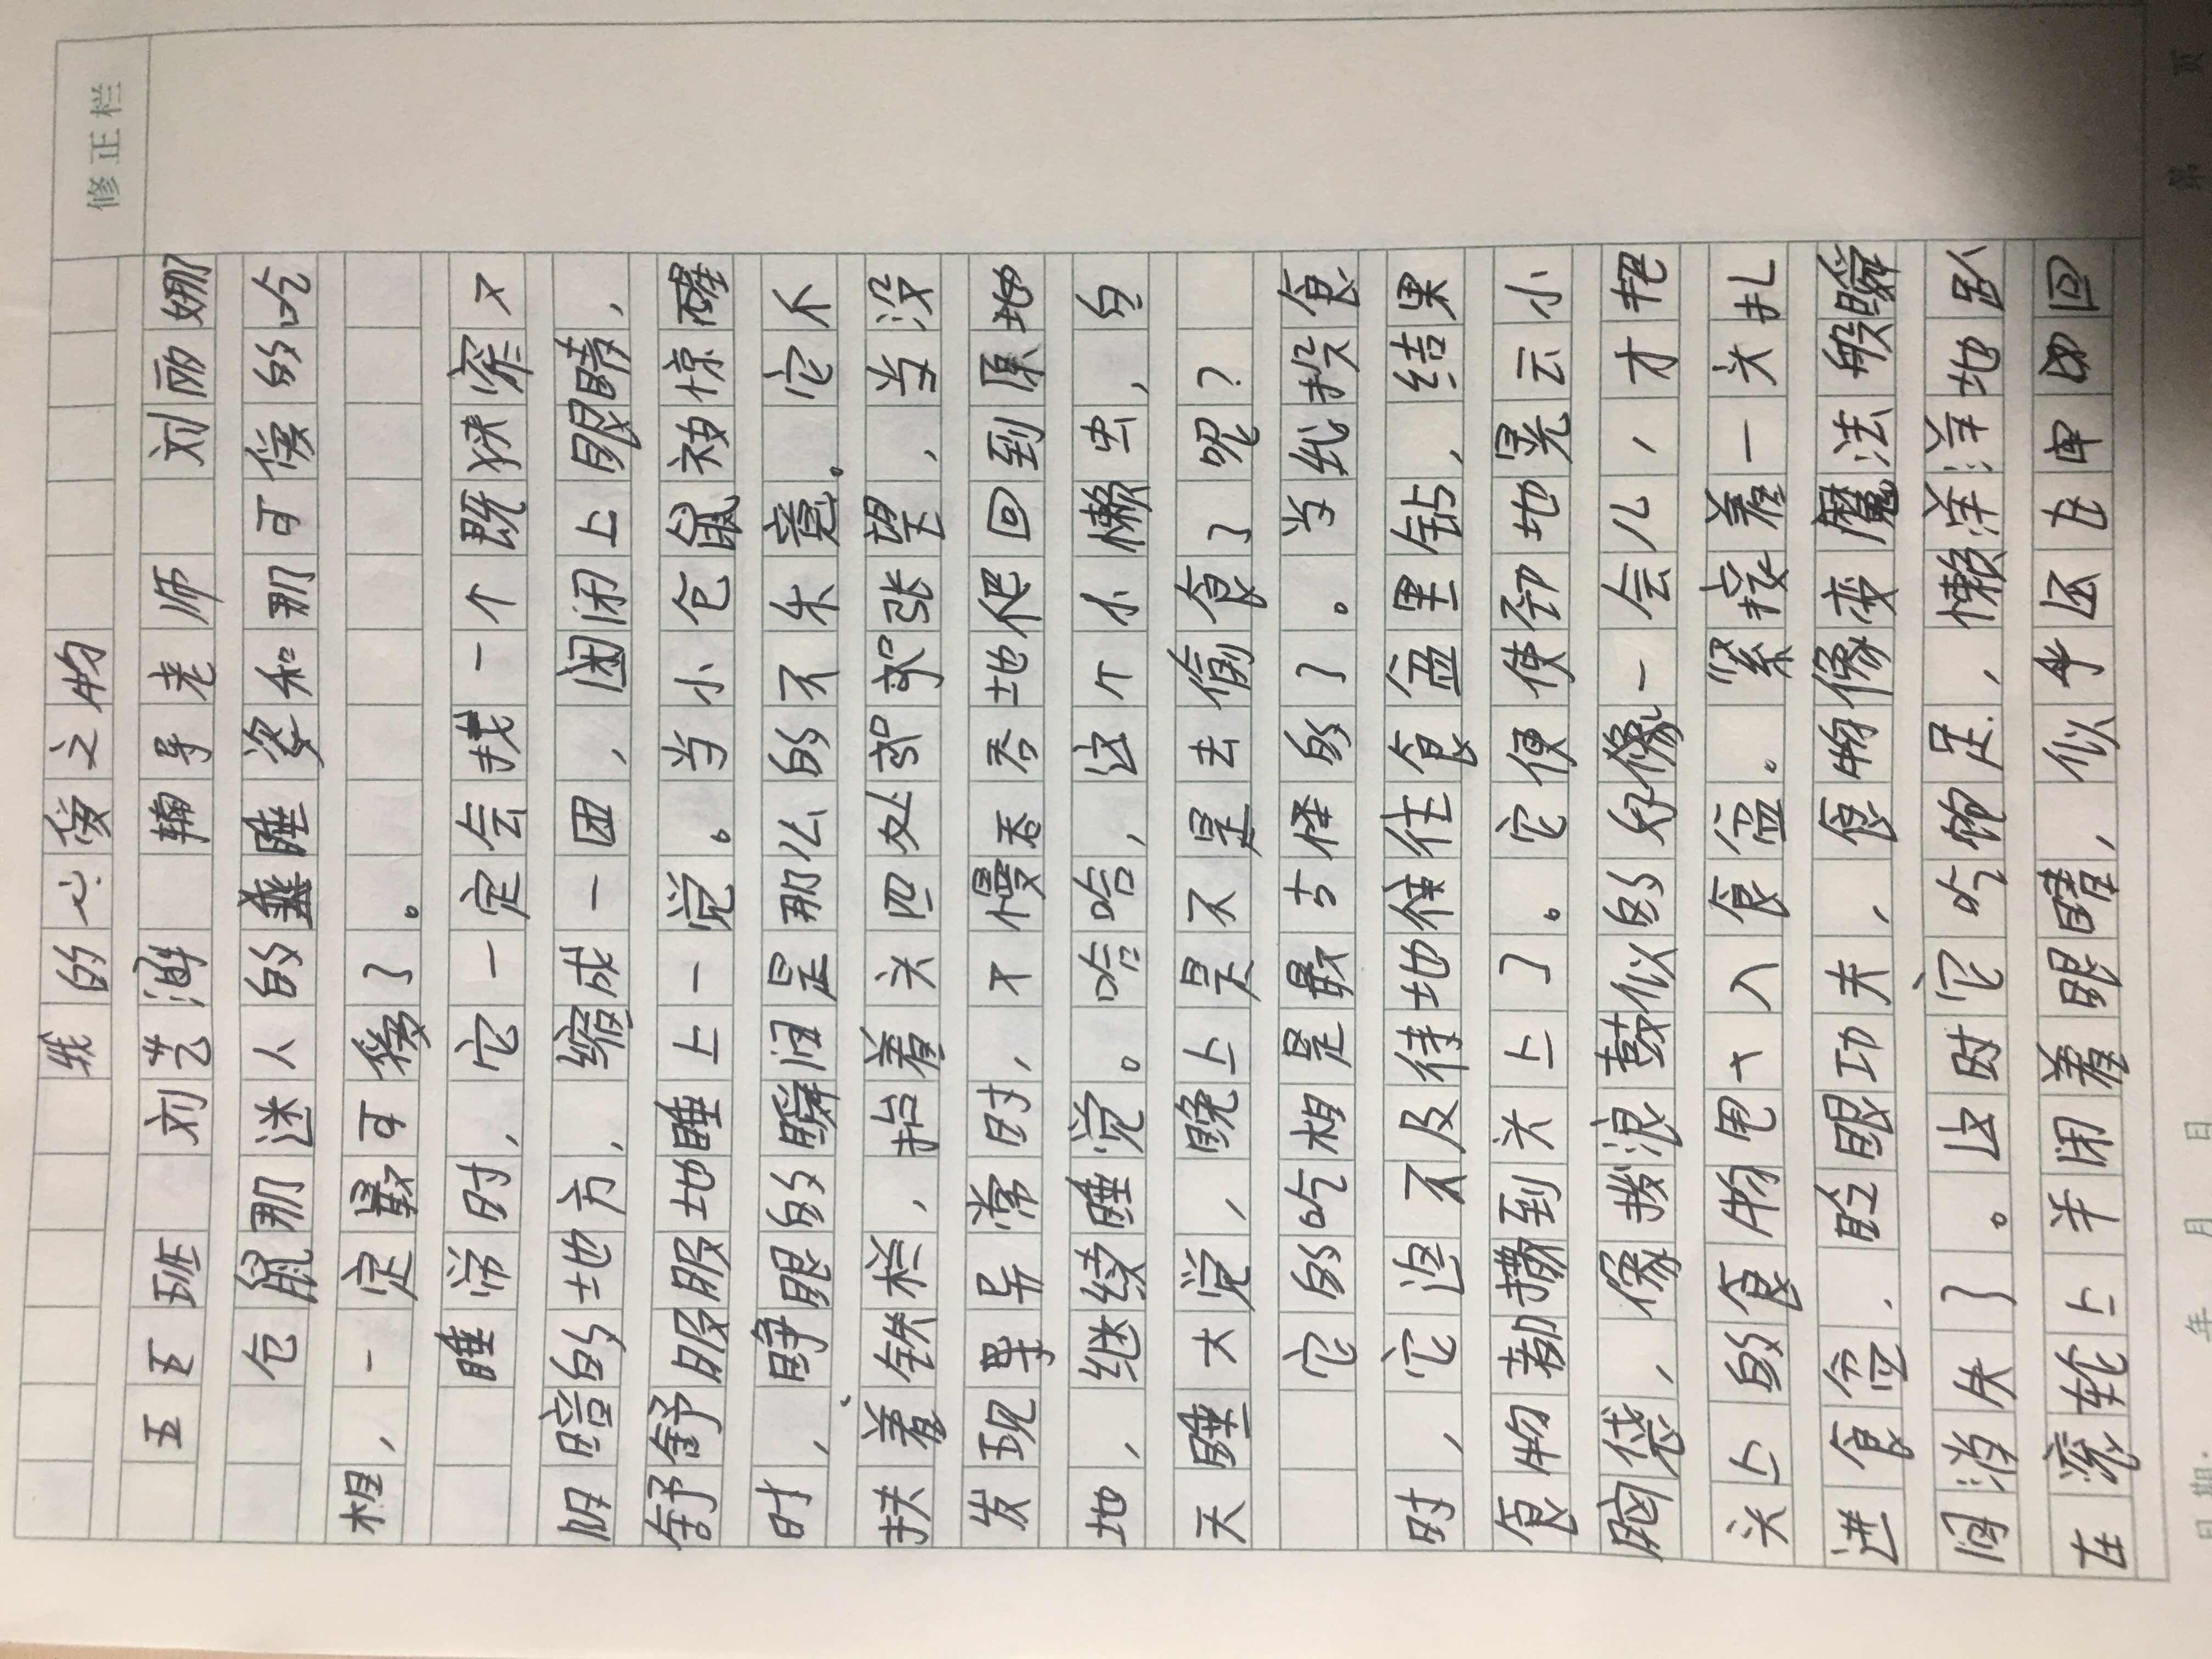 修正栏
我的心爱之物
五五班 刘艺涵 辅导老师 刘丽娜
仓鼠那迷人的睡姿和那可爱的吃
相,一定最可爱了。
睡常时,它一定会找一个既狭窄又
阴暗的地方,缩成一团,困闭上眼睛,
舒舒服服地睡上一觉。当小仓鼠被惊醒
时,睁眼的瞬间是那么的不乐意。它不
扶着铁栏,抬着头四处张望,当没
发现异常时,又慢吞吞地爬回到原地
地,继续睡觉。哈哈,这个小懒虫,白
天睡大觉,晚上是不是去偷食了呢?
它的吃相是最古怪的了。当我投食
时,它迫不及待地往食盆里钻,结果
食物都撒到头上了。它便使劲地晃云小
脑袋,像拨浪鼓似的好像一会儿,才把
头上的食物甩入食盆。紧接着一头扎
进食盆.眨眼功夫,食物像变魔法般瞬
间消失了。此时它吃饱足,懒洋洋地趴
在滚轮上半闭着眼睛,似乎还在回
日期: 年 月 日 第 页